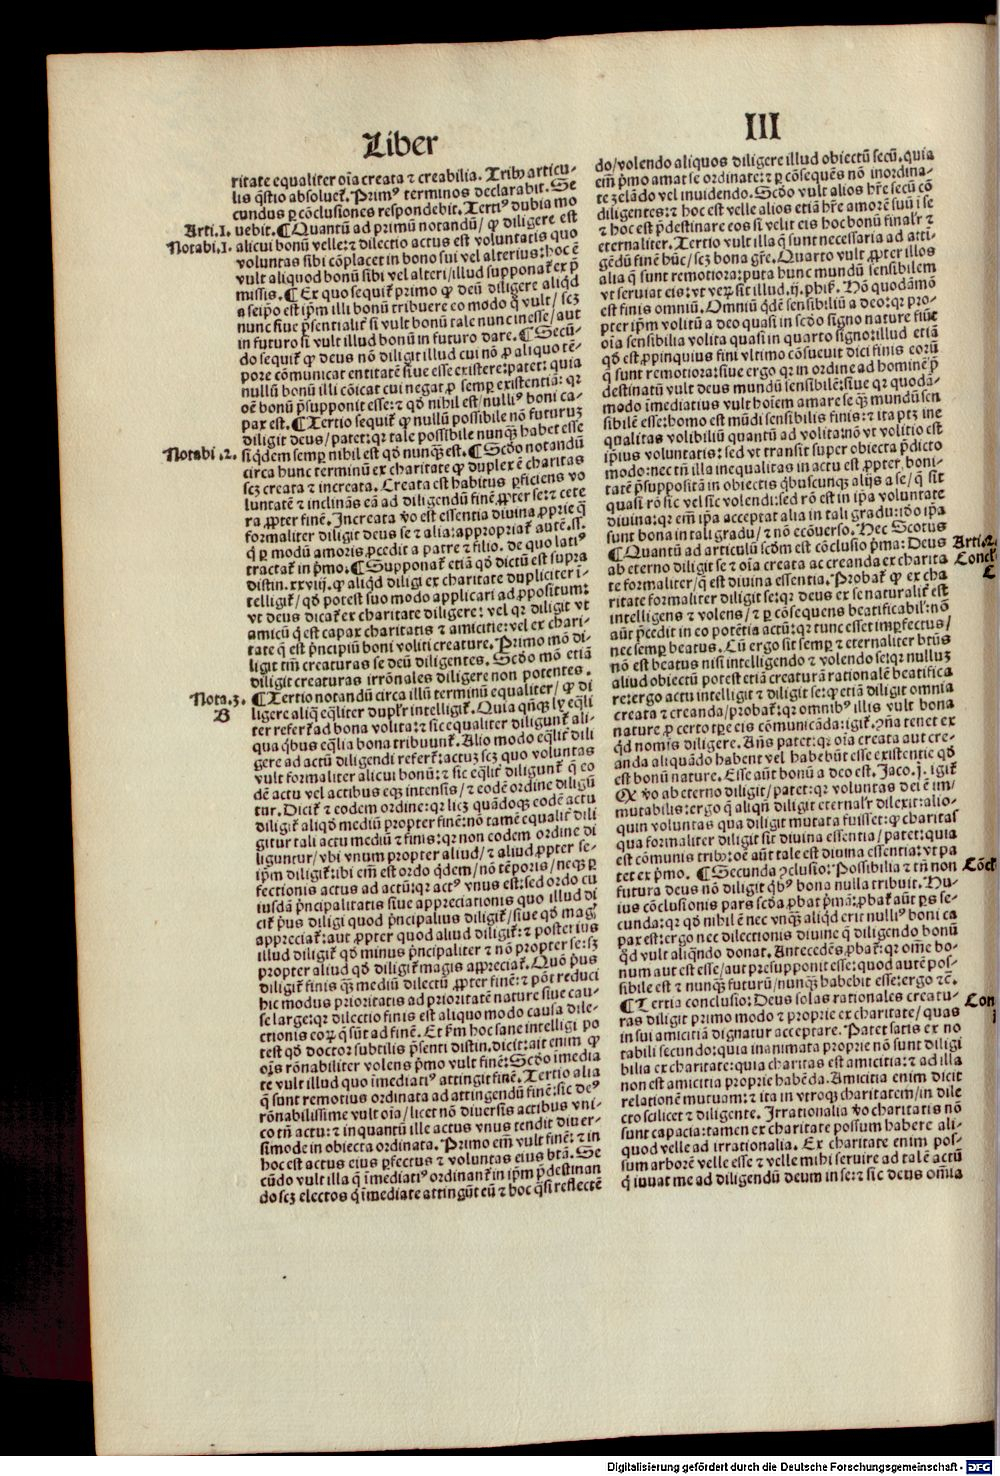 Liber
III
ritate equaliter oīa creata ⁊ creabilia. Tribꝰ articu-
lis q̄stio absoluet̄. Primꝰ terminos declarabit. Se
cundus ꝑ cōclusiones respondebit. Tertiꝰ dubia mo
Arti.1. uebit. ¶ Quantū ad primū notandū/ ꝙ diligere est
Notabi.1. alicui bonū velle: ⁊ dilectio actus est voluntatis quo
voluntas sibi cōplacet in bono sui vel alterius: hoc ē
vult aliquod bonū sibi vel alteri/ illud supponat̄ ex p̄
missis. ¶ Ex quo sequit̄ primo ꝙ deū diligere aliqd̄
a seip̄o est ip̄m illi bonū tribuere eo modo q̄ vult/ scꝫ
nunc siue p̄sentialit̄ si vult bonū tale nunc inesse/ aut
in futuro si vult illud bonū in futuro dare. ¶ Secū-
do sequit̄ ꝙ deus nō diligit illud cui nō ꝓ aliquo tē-
pore cōmunicat entitatē siue esse existere: patet: quia
nullū bonū illi cōicat cui negat ꝓ semꝑ existentiā: qr
oē bonū p̄supponit esse: ⁊ qd̄ nihil est/ nulliꝰ boni ca-
pax est. ¶ Tertio sequit̄ ꝙ nullū possibile nō futuruꝫ
diligit deus/ patet: qr tale possibile nunq̄ꝫ habet esse
Notabi.2. si q̄dem semꝑ nihil est qd̄ nunq̄ꝫ est. ¶ Scd̄o notandū
circa hunc terminū ex charitate ꝙ duplex ē charitas
scꝫ creata ⁊ increata. Creata est habitus ꝑficiens vo
luntatē ⁊ inclināns eā ad diligendū finē ꝓpter se: ⁊ cete
ra ꝓpter finē. Increata v̄o est essentia diuina ꝓprie q̄
formaliter diligit deus se ⁊ alia: appropriat̄ autē .ss.
q̄ ꝑ modū amoris ꝓcedit a patre ⁊ filio. de quo latiꝰ
tractat̄ in p̄mo. ¶ Supponat̄ etiā qd̄ dictū est supra
distin. xxviij. ꝙ aliqd̄ diligi ex charitate dupliciter ī-
telligit̄/ qd̄ potest suo modo applicari ad ꝓpositum:
vt deus dicat̄ ex charitate diligere: vel qr diligit vt
amicū q̄ est capax charitatis ⁊ amicitie: vel ex chari-
tate q̄ est p̄ncipiū boni voliti creature. Primo mō di-
ligit tm̄ creaturas se deū diligentes. Scd̄o mō etiā
diligit creaturas irrōnales diligere non potentes.
Nota.3. ¶ Tertio notandū circa illū terminū equaliter/ ꝙ di
B ligere aliq̄ eq̄liter dupl̄r intelligit̄. Quia qn̄qꝫ ly eq̄li
ter refert̄ ad bona volita: ⁊ sic equaliter diligunt̄ ali-
qua q̄bus eq̄lia bona tribuunt̄. Alio modo eq̄lit̄ dili
gere ad actū diligendi refert̄: actuꝫ scꝫ quo voluntas
vult formaliter alicui bonū: ⁊ sic eq̄lit̄ diligunt̄ q̄ eo
dē actu vel actibus eqꝫ intensis/ ⁊ eodē ordine diligū
tur. Dicit̄ ⁊ eodem ordine: qr licꝫ quādoqꝫ eodē actu
diligit̄ aliqd̄ mediū propter finē: nō tamē equalit̄ dili
gitur tali actu mediū ⁊ finis: qr non eodem ordine di
liguntur/ vbi vnum propter aliud/ ⁊ aliud ꝓpter se-
ip̄m diligit̄: ibi em̄ est ordo q̄dem/ nō tēporis/ neqꝫ ꝑ
fectionis actus ad actū: qr actꝰ vnus est: sed ordo cu
iusdā p̄ncipalitatis siue appreciationis quo illud di
cit̄ pꝰus diligi quod p̄ncipalius diligit̄/ siue qd̄ magꝭ
appreciat̄: aut ꝓpter quod aliud diligit̄: ⁊ posterius
illud diligit̄ qd̄ minus p̄ncipaliter ⁊ nō propter se: sꝫ
propter aliud qd̄ diligit̄ magis appreciat̄. Quō pꝰus
diligit̄ finis q̄ꝫ mediū dilectū ꝓpter finē: ⁊ pōt reduci
hic modus prioritatis ad prioritatē nature siue cau-
se large: qr dilectio finis est aliquo modo causa dile-
ctionis eoꝝ q̄ sūt ad finē. Et s̄m hoc sane intelligi po
test qd̄ doctor subtilis p̄senti distin. dicit: ait enim ꝙ
oīs rōnabiliter volens p̄mo vult finē: Scd̄o īmedia
te vult illud quo īmediatiꝰ attingit finē. Tertio alia
q̄ sunt remotius ordinata ad attingendū finē: sic deꝰ
rōnabilissime vult oīa/ licet nō diuersis actibus vni-
co tn̄ actu: ⁊ inquantū ille actus vnus tendit diuer-
simode in obiecta ordinata. Primo em̄ vult finē: ⁊ in
hoc est actus eius ꝑfectus ⁊ voluntas eius btā. Se
cūdo vult illa q̄ īmediatiꝰ ordinant̄ in ip̄m p̄destinan
do scꝫ electos q̄ īmediate attingūt eū ⁊ hoc q̄si reflectē
do/ volendo aliquos diligere illud obiectū secū. quia
em̄ p̄mo amat se ordinate: ⁊ ꝑ cōseq̄ns nō inordina-
te zelādo vel inuidendo. Scd̄o vult alios h̄re secū cō
diligentes: ⁊ hoc est velle alios etiā h̄re amorē suū ī se
⁊ hoc est p̄destinare eos si velit eis hoc bonū final̄r ⁊
eternaliter. Tertio vult illa q̄ sunt necessaria ad atti-
gēdū finē hūc/ scꝫ bona gr̄e. Quarto vult ꝓpter illos
alia q̄ sunt remotiora: puta hunc mundū sensibilem
vt seruiat eis: vt veꝝ sit illud .ij. phiẜ. Hō quodāmō
est finis omniū. Omniū q̄dē sensibiliū a deo: qr pro-
pter ip̄m volitū a deo quasi in scd̄o signo nature fiūt
oīa sensibilia volita quasi in quarto signo: illud etiā
qd̄ est ꝓpinquius fini vltimo cōsueuit dici finis eorū
q̄ sunt remotiora: siue ergo qr in ordine ad hominē p̄
destinatū vult deus mundū sensibilē: siue qr quodā-
modo īmediatius vult hoīem amare se q̄ꝫ mundū sen
sibilē esse: homo est mūdi sensibilis finis: ⁊ ita ptꝫ ine
qualitas volibiliū quantū ad volita: nō vt volitio est
ip̄ius voluntatis: sed vt transit super obiecta p̄dicto
modo: nec tn̄ illa inequalitas in actu est ꝓpter boni-
tatē p̄suppositā in obiectis q̄buscunqꝫ alijs a se/ q̄ sit
quasi rō sic vel sic volendi: sed rō est in ip̄a voluntate
diuina: qr em̄ ip̄a acceptat alia in tali gradu: iō ip̄a
sunt bona in tali gradu/ ⁊ nō ecōuerso. Hec Scotus
¶ Quantū ad articulū scd̄m est cōclusio p̄ma: Deus Arti.2.
ab eterno diligit se ⁊ oīa creata ac creanda ex charita Concl
te formaliter/ q̄ est diuina essentia. Probat̄ ꝙ ex cha
ritate formaliter diligit se: qr deus ex se naturalit̄ est
intelligens ⁊ volens/ ⁊ ꝑ cōsequens beatificabil̄: nō
aūt p̄cedit in eo potētia actū: qr tunc esset imꝑfectus/
nec semꝑ beatus. Cū ergo sit semꝑ ⁊ eternaliter btūs
nō est beatus nisi intelligendo ⁊ volendo se: qr nulluꝫ
aliud obiectū potest etiā creaturā rationalē beatifica
re: ergo actu intelligit ⁊ diligit se: ꝙ etiā diligit omnia
creata ⁊ creanda/ probat̄: qr omnibꝰ illis vult bona
nature ꝓ certo tꝑe eis cōmunicāda: igit̄. ꝯn̄a tenet ex
q̄d nomīs diligere. Añs patet: qr oīa creata aut cre-
anda aliquādo habent vel habebūt esse existentie qd̄
est bonū nature. Esse aūt bonū a deo est. Jaco.j. igit̄
Ꝙ v̄o ab eterno diligit/ patet: qr voluntas dei ē im/
mutabilis: ergo q̄ aliqn̄ diligit eternal̄r dilexit: alio-
quin voluntas qua diligit mutata fuisset: ꝙ charitas
qua formaliter diligit sit diuina essentia/ patet: quia
est cōmunis tribꝰ: oē aūt tale est diuina essentia: vt pa
tet ex p̄mo. ¶ Secunda ꝯclusio: Possibilia ⁊ tn̄ non Cōcl
futura deus nō diligit q̄bꝰ bona nulla tribuit. Hu-
ius cōclusionis pars scd̄a ꝓbat p̄mā: ꝓbat̄ aūt ꝑs se-
cunda: qr qd̄ nihil ē nec vnq̄ꝫ aliqd̄ erit nulliꝰ boni ca
pax est: ergo nec dilectionis diuine q̄ diligendo bonū
q̄d vult aliqn̄do donat. Antecedēs ꝓbat̄: qr om̄e bo-
num aut est esse/ aut presupponit esse: quod autē pos-
sibile est ⁊ nunq̄ꝫ futurū/ nunq̄ꝫ habebit esse: ergo ⁊c̄.
¶ Tertia conclusio: Deus solas rationales creatu- Con
ras diligit primo modo ⁊ proprie ex charitate/ quas
in sui amicitiā dignatur acceptare. Patet satis ex no
tabili secundo: quia inanimata proprie nō sunt diligi
bilia ex charitate: quia charitas est amicitia: ⁊ ad illa
non est amicitia proprie habēda. Amicitia enim dicit
relationē mutuam: ⁊ ita in vtroqꝫ charitatem/ in dile
cto scilicet ⁊ diligente. Irrationalia v̄o charitatis nō
sunt capacia: tamen ex charitate possum habere ali-
quod velle ad irrationalia. Ex charitate enim pos-
sum arborē velle esse ⁊ velle mihi seruire ad talē actū
q̄ iuuat me ad diligendū deum in se: ⁊ sic deus om̄ia
Digitalisierung gefördert durch die Deutsche Forschungsgemeinschaft - DFG